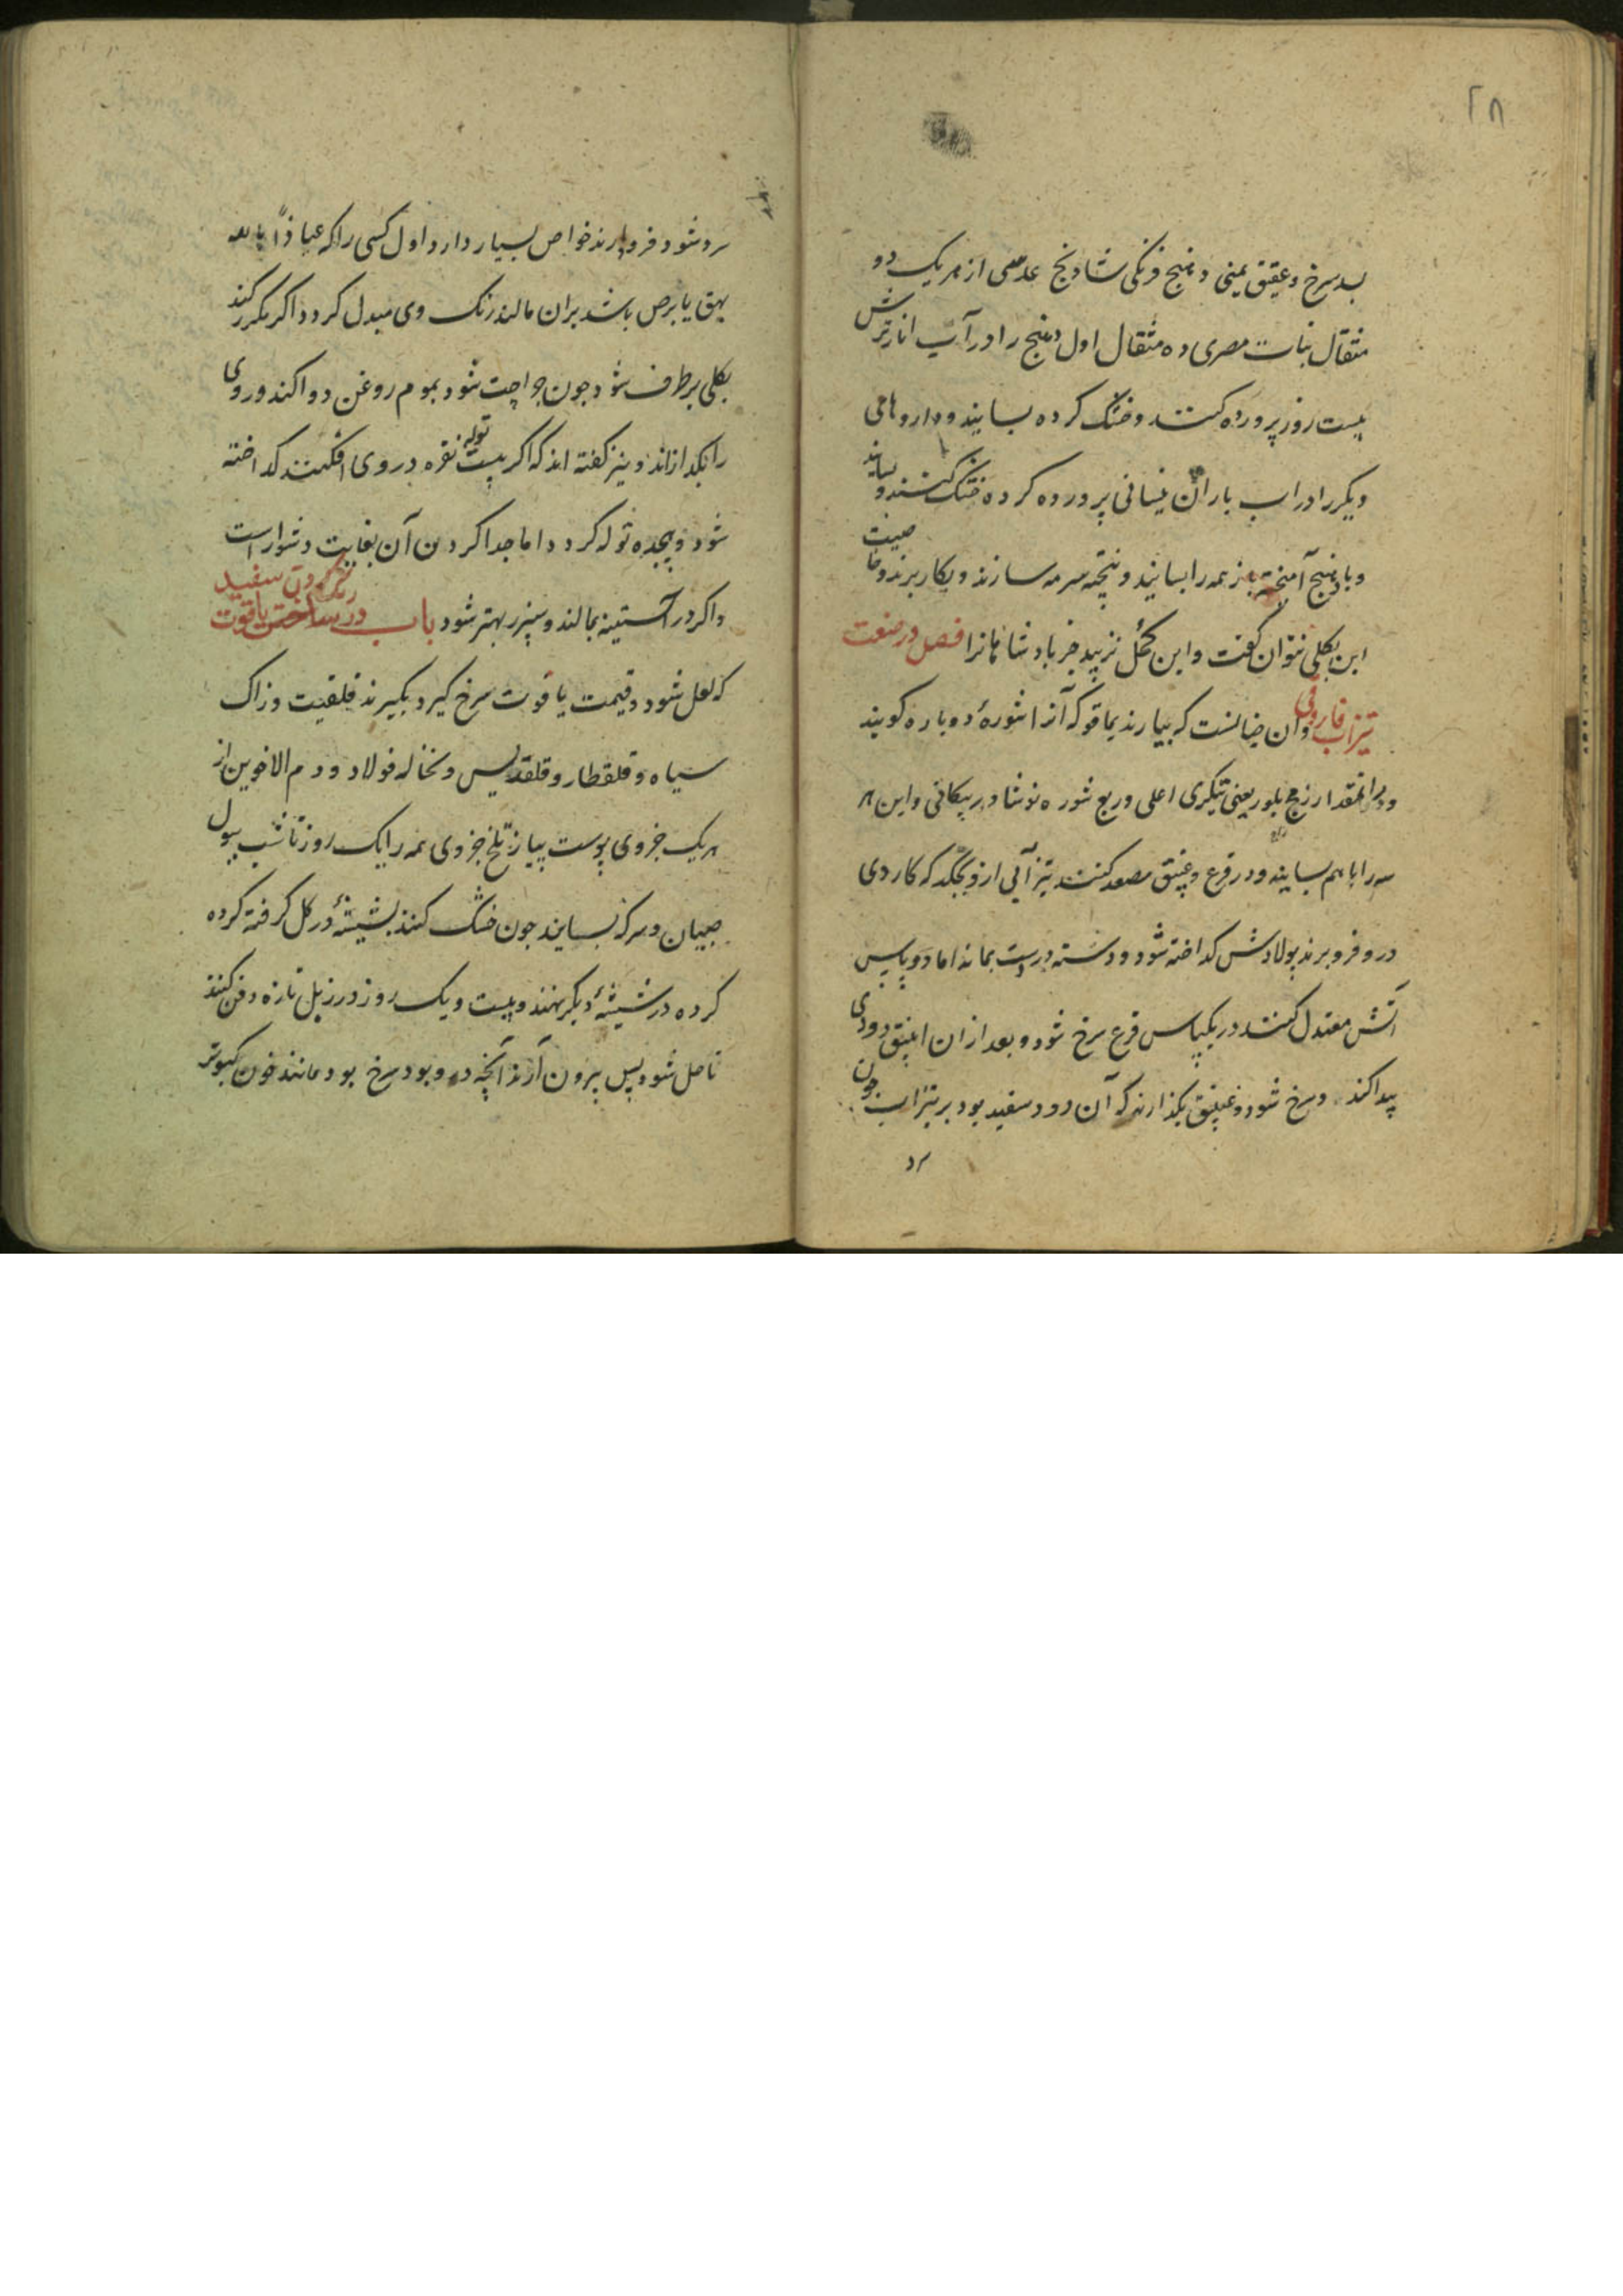 ۲۸
بسد سرخ و عقیق یمنی و دهنج فرنکی شادنج عدسی از هر یک دو
مثقال نبات مصری ده مثقال اول دهنج را در آب انار ترش
بیست روز پرورده کنند و خشک کرده بسایند و داروهای
دیکر را در اب باران نیسانی پرورده کرده خشک کنند و بسایند
و با دهنج آمیخته باز همه را بسایند و پخته سرمه سازند و بکار برند و خاصیت
این بکلی نتوان کفت و این کحل نزیبد جز بادشاهانرا فصل در صنعت
تیزاب فاروقی و آن چنانست که بیارند یماقو که آنرا شورۀ دوباره کویند
و برابر انمقدار زمج بلور یعنی تپکری اعلی و ربع شوره نوشادر پیکانی و این هر
سه را با هم بسایند و در قرع و عنبیق مصعد کنند تیزآبی ازو بچکد که کاردی
درو فرو برند پولادش کداخته شود و دسته درست بماند اما دو پاس
آتش معتدل کنند در یکپاس قرع سرخ شود و بعد از ان انبیق دودی
پیدا کند و سرخ شود و عنبیق بکذارند که آن دود سفید بود بر تیزاب چون
سرد
سرد شود فرود آرند خواص بسیار دارد اول کسی را که عیاذا بالله
بهق یا برص باشد بران مالند رنک وی مبدل کردد اکر مکرر کنند
بکلی برطرف شود چون جراحت شود بموم روغن دوا کند و روی
را بکدازاند و نیز کفته اند که اکر بیست توله نقره در وی افکنند کداخته
شود و هجده توله کردد اما جدا کردن آن بغایت دشوار است
و اکر در آستینه بمالند و سپرر بهتر شود باب در ساختن یاقوت
رنک کردن سفید
که لعل شود و قیمت یاقوت سرخ کیرد بکیرند قلقیت و زاک
سیاه و قلقطار و قلقدیس و نخاله فولاد و دم الاخوین از
هر یک جزوی پوست پیاز تلخ جزوی همه را یک روز تا شب ببول
صبیان و سرکه بسایند چون خشک کنند بشیشۀ در کل کرفته کرده
کرده در شیشۀ دیکر نهند و بیست و یک روز در زبل تازه دفن کنند
تا حل شود پس بیرون آرند آنچه درو بود سرخ بود مانند خون کبوتر